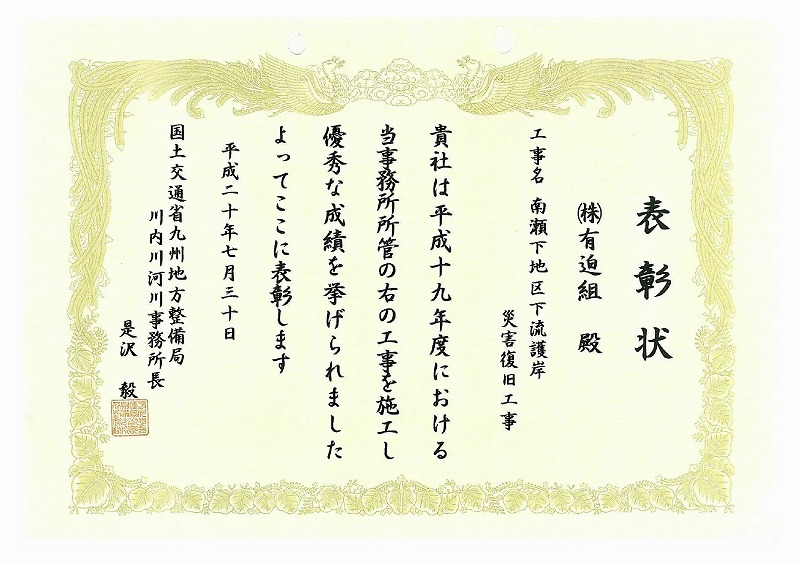 表彰状
㈱有迫組 殿
工事名 南瀬下地区下流護岸
災害復旧工事
貴社は平成十九年度における
当事務所所管の右の工事を施工し
優秀な成績を挙げられました
よってここに表彰します
平成二十年七月三十日
国土交通省九州地方整備局
川内川河川事務所長
是沢 毅